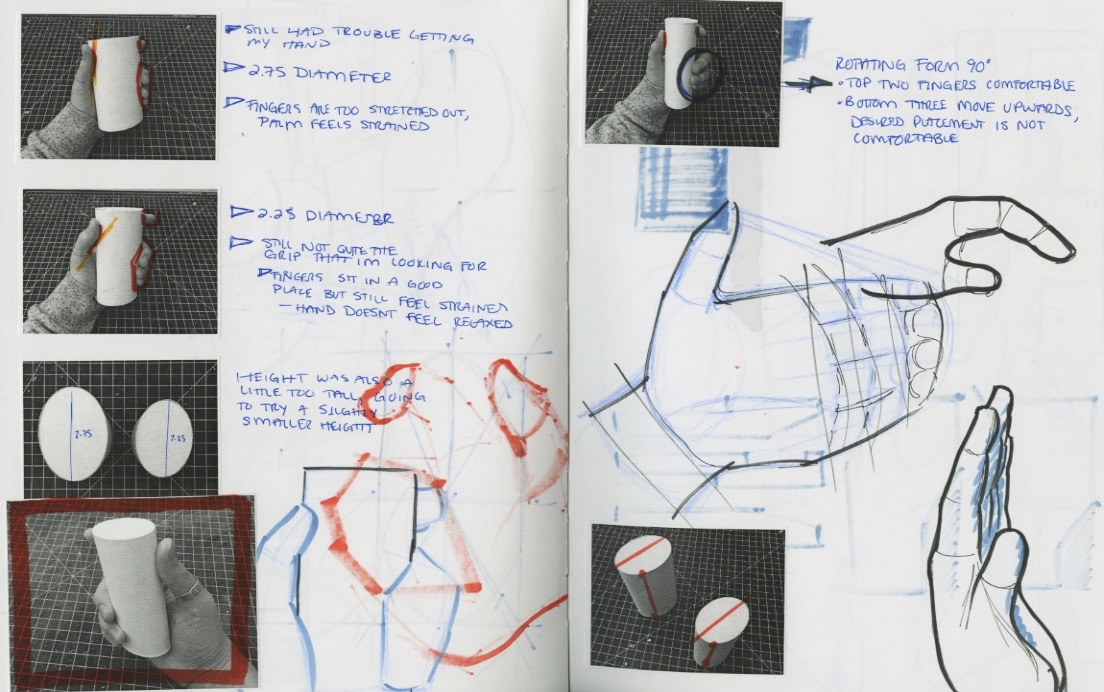 STILL HAD TROUBLE GETTING
MY HAND
2.75 DIAMETER
FINGERS ARE TOO STRETCHED OUT,
PALM FEELS STRAINED
2.25 DIAMETER
STILL NOT QUITE THE
GRIP THAT IM LOOKING FOR
FINGERS SIT IN A GOOD
PLACE BUT STILL FEEL STRAINED
— HAND DOESNT FEEL RELAXED
HEIGHT WAS ALSO A
LITTLE TOO TALL, GOING
TO TRY A SLIGHTLY
SMALLER HEIGHT
2.75
2.25
ROTATING FORM 90°
• TOP TWO FINGERS COMFORTABLE
• BOTTOM THREE MOVE UPWARDS,
DESIRED PLACEMENT IS NOT
COMFORTABLE